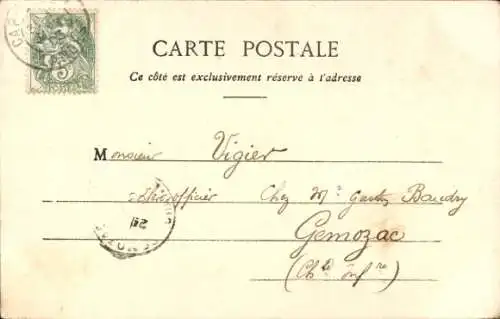 CARTE POSTALE
Ce côté est exclusivement réservé à l'adresse
Monsieur Vigier
Chez Mr Gaston Baudry
Gemozac
(Chte infre)